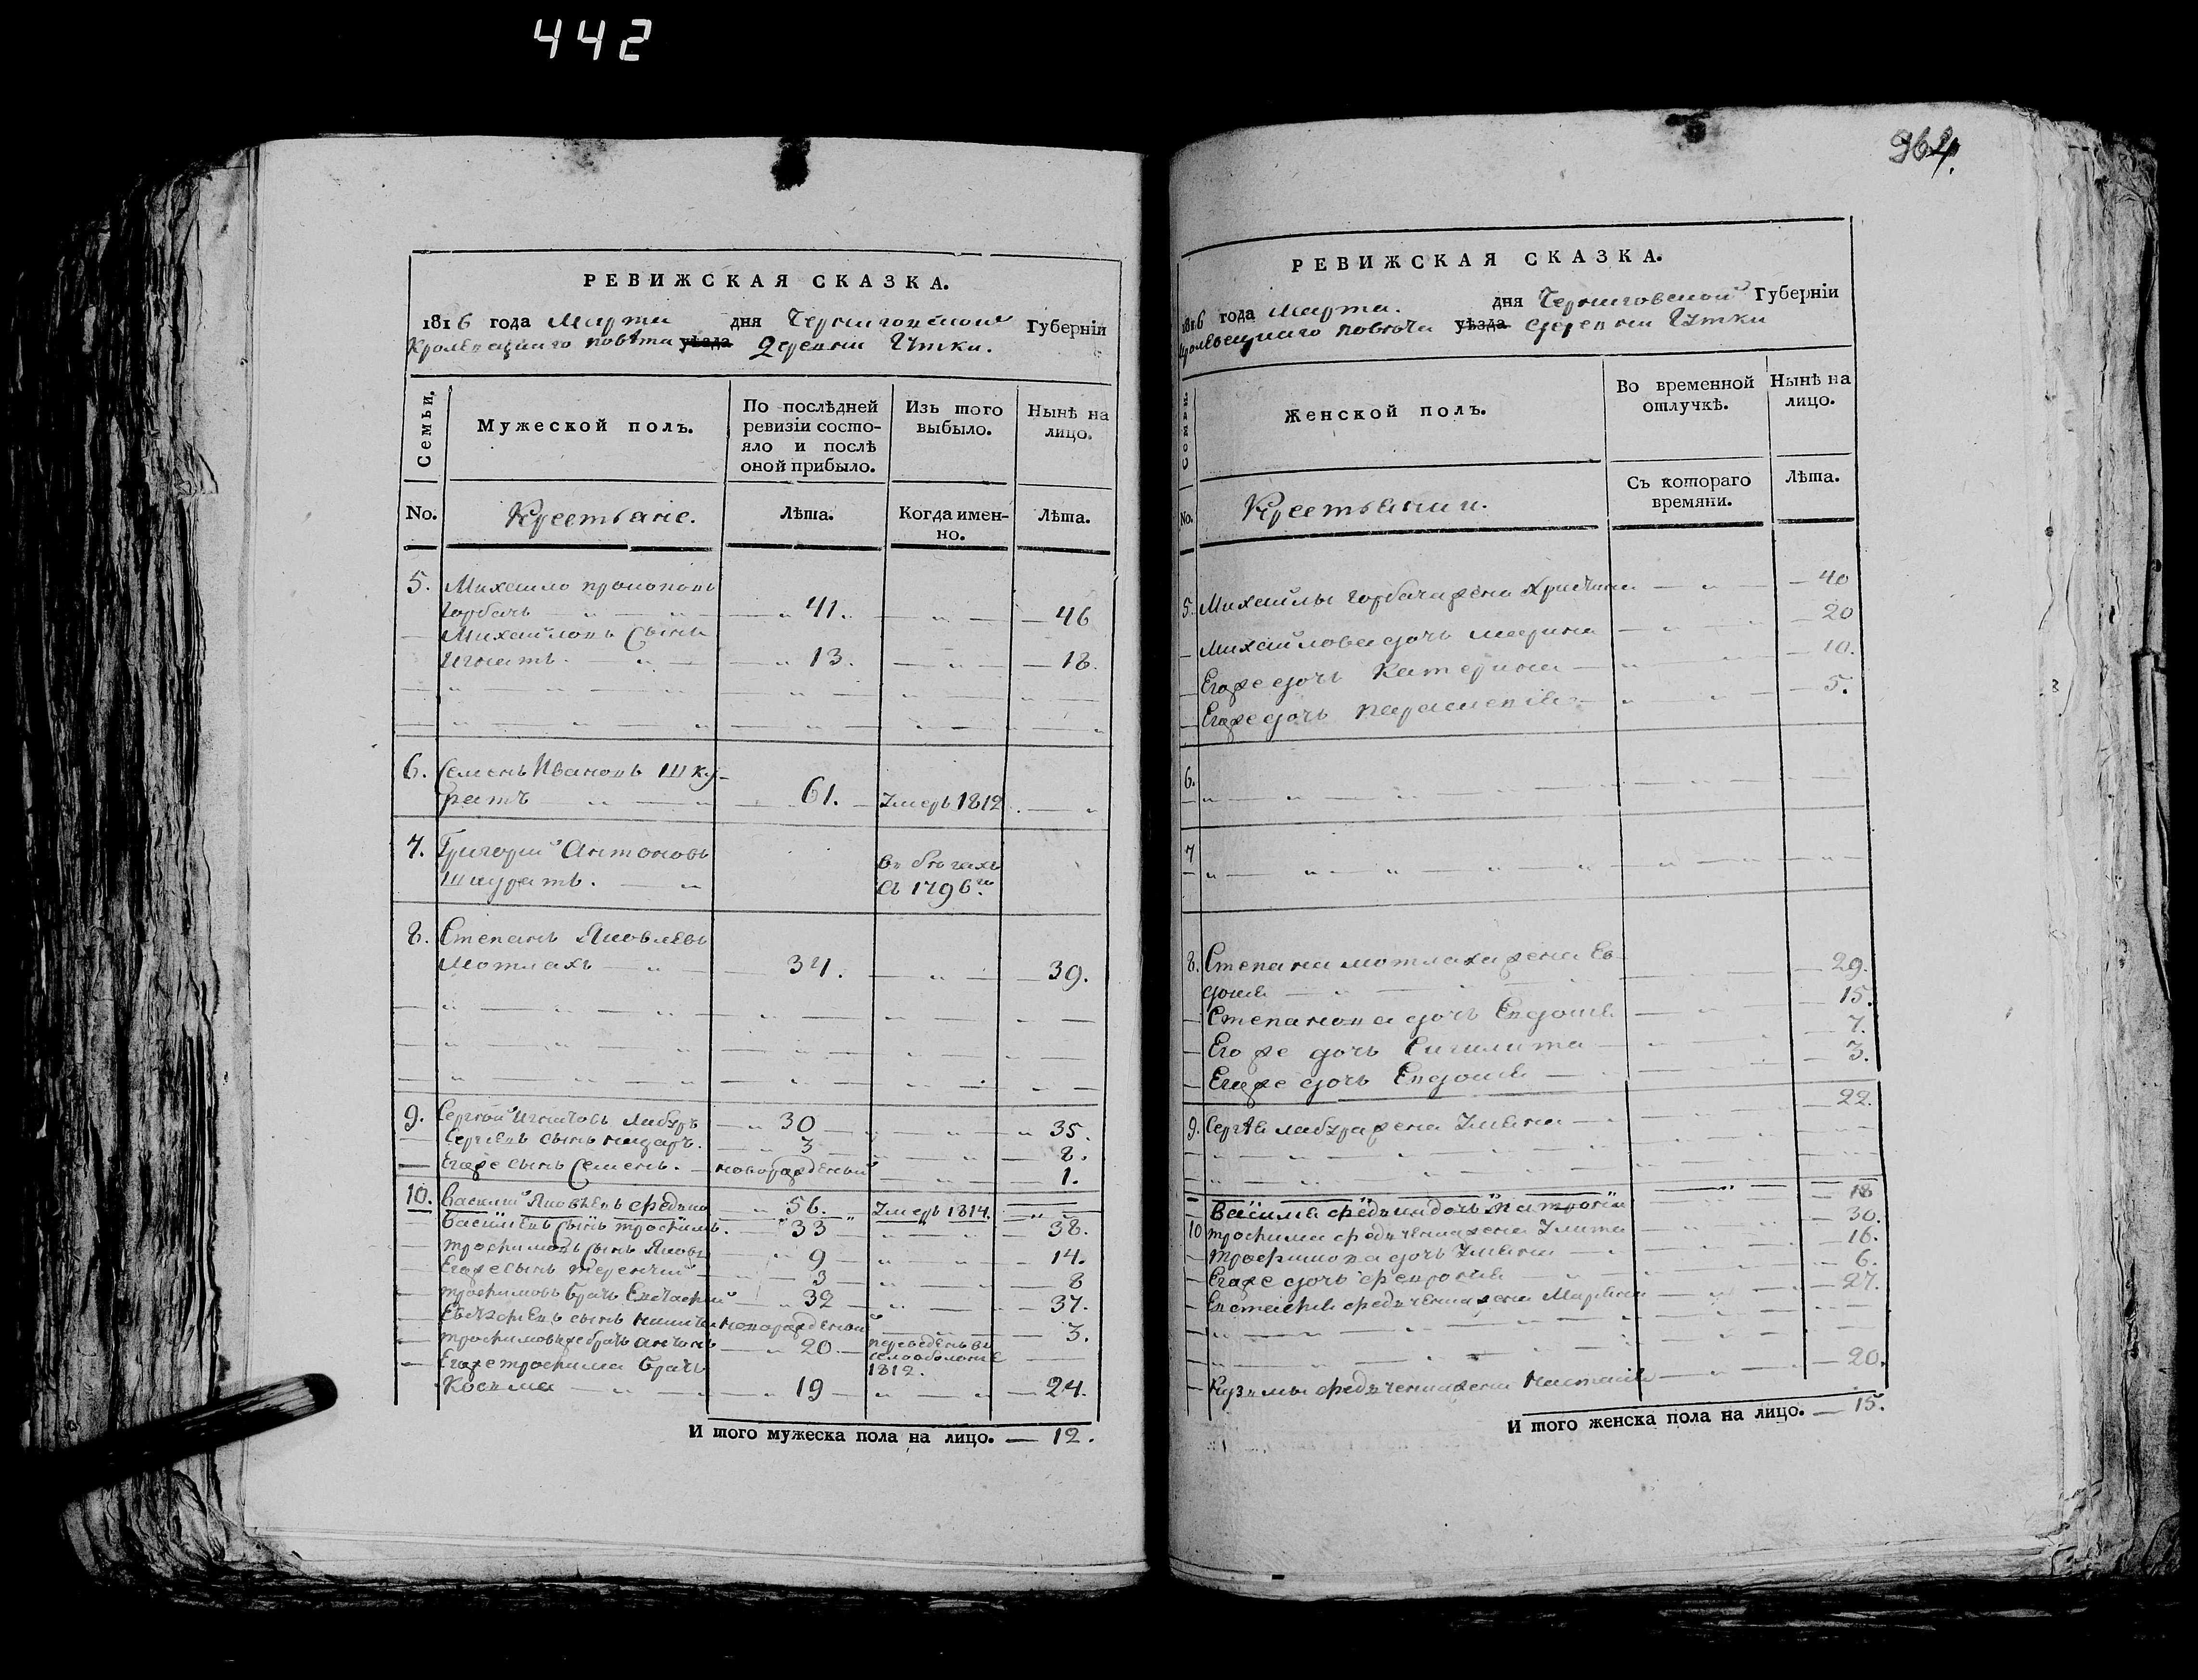 442
964.
РЕВИЖСКАЯ СКАЗКА.
1816 года Марта дня Черниговской Губерніи
Кролевецкаго повѣта уѣзда Деревни Утки.
Семьи.
Мужеской полъ.
По послѣдней
ревизіи состо-
яло и послѣ
оной прибыло.
Изъ того
выбыло.
Нынѣ на
лицо.
No.
Крестьяне.
Лѣта.
Когда имен-
но.
Лѣта.
5. Михаило прокоповъ
горбачь 41. 46
Михайловъ Сынъ
Игнатъ. 13. 18.
6. Семенъ Ивановъ Шку-
ратъ 61. Умеръ 1812
7. Григорій Антоновъ въ бѣгахъ
Шкуратъ. съ 1796го
8. Степанъ Яковлевъ
Мотлахъ 34. 39.
9. Сергѣй Игнатовъ Лабзръ 30 35.
Сергѣевъ сынъ 3 8.
Егоже сынъ Семенъ. новорожденный 1.
10. Василий Яковлевъ 56. Умеръ 1814.
Васильевъ Сынъ трофимъ. 33 38.
трофимовъ Сынъ Яковъ 9 14.
Егоже сынъ терентий 3 8
трофимовъ братъ Евстафий 32 37.
Евстафиевъ сынъ новорожденный 3.
трофимовъ же братъ антонъ 20 переведенъ въ
село оболонье
Егоже трофима братъ 1812.
Косьма 19 24.
И того мужеска пола на лицо. 12.
РЕВИЖСКАЯ СКАЗКА.
1816 года Марта. дня Черниговской Губерніи
Кролевецкаго повѣта уѣзда деревни Утки
Семьи
Женской полъ.
Во временной
отлучкѣ.
Нынѣ на
лицо.
No.
Крестьянки.
Съ котораго
времяни.
Лѣта.
5. Михайлы горбача жена Христина 40
Михайлова дочь марина 20
Егоже дочь Катерина 10.
Егоже дочь парасковія 5.
6.
7
8. Степана мотлаха жена Ев-
докія 29.
Степанова дочь Евдокія 15.
Егоже дочь 7.
Егоже дочь Евдокія 3.
9. Сергѣя лабзра жена Ульяна 22.
Василія дочь 18
10 трофима жена Улита 30.
трофимова дочь Ульяна 16.
Егоже дочь феврония 6.
Евстафія жена Марина 27.
Кузьмы жена настасія 20.
И того женска пола на лицо. 15.